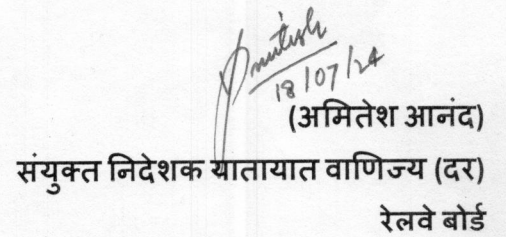 Amitesh
18/07/24
(अमितेश आनंद)
संयुक्त निदेशक यातायात वाणिज्य (दर)
रेलवे बोर्ड